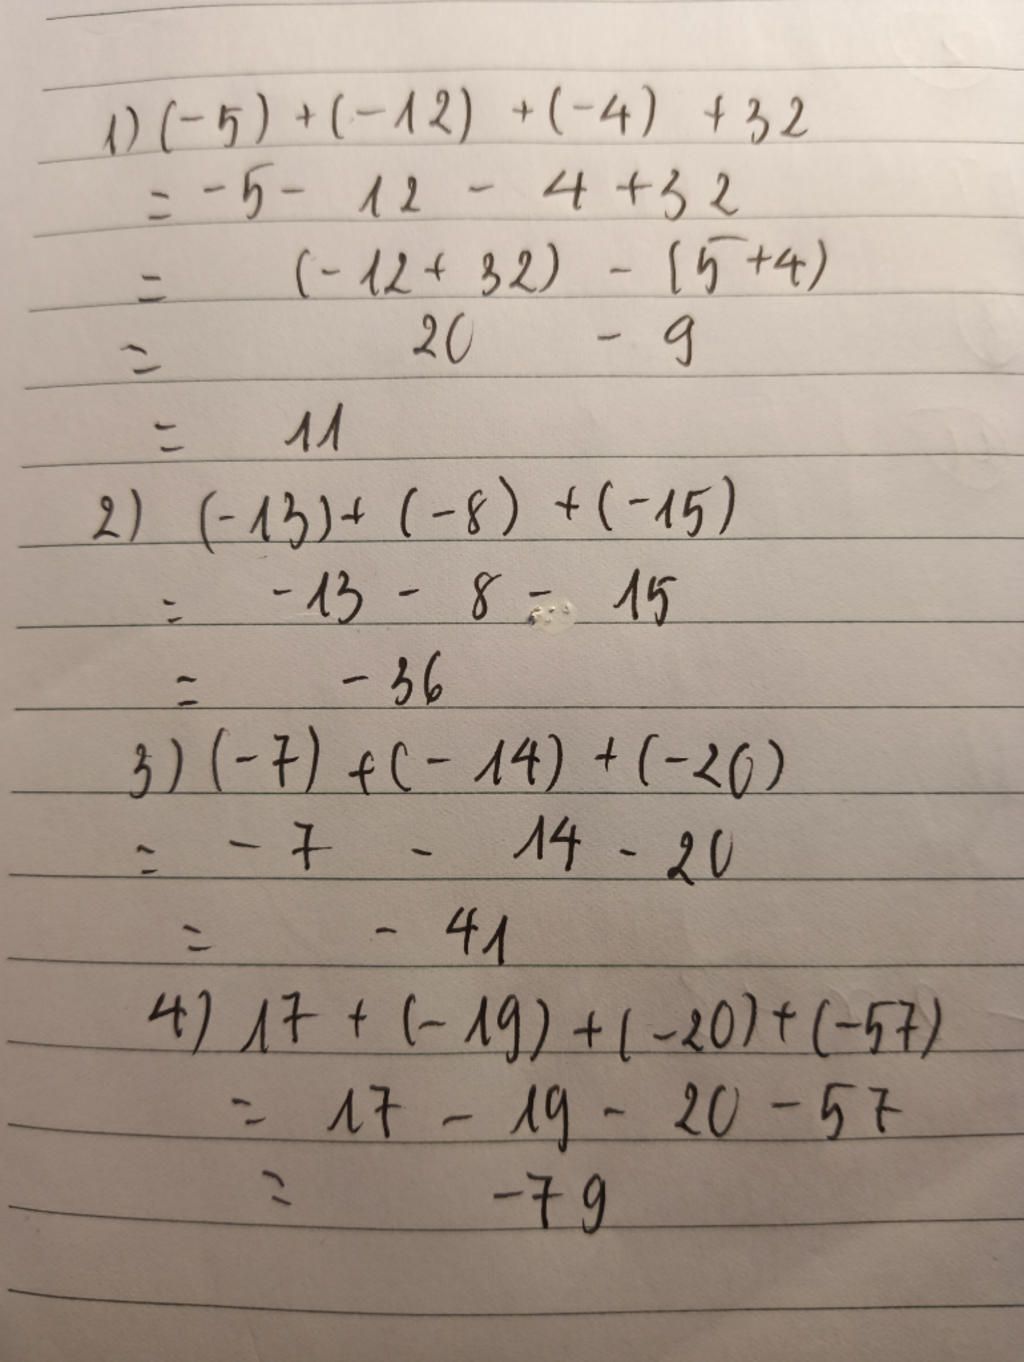 1) (-5) + (-12) + (-4) + 32
= -5 - 12 - 4 + 32
= (-12 + 32) - (5 + 4)
= 20 - 9
= 11
2) (-13) + (-8) + (-15)
= -13 - 8 - 15
= -36
3) (-7) + (-14) + (-20)
= -7 - 14 - 20
= -41
4) 17 + (-19) + (-20) + (-57)
= 17 - 19 - 20 - 57
= -79